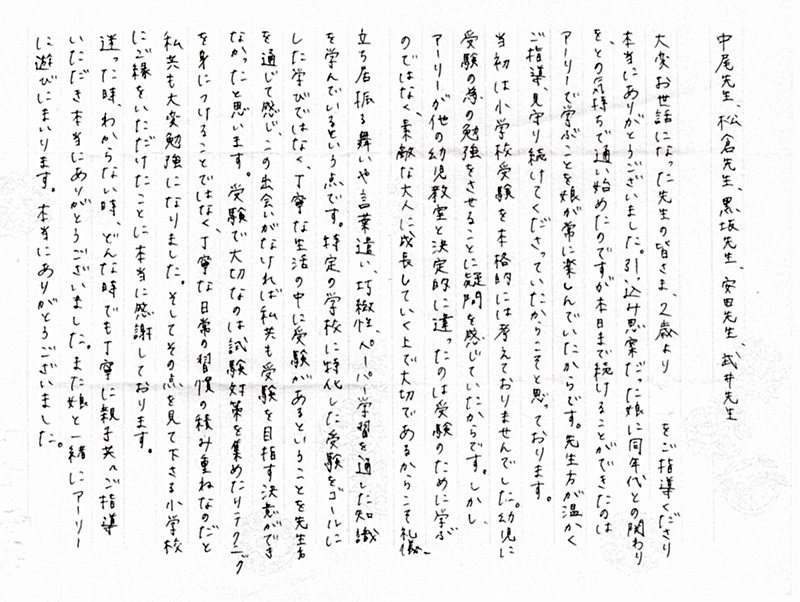 中尾先生、松倉先生、黒坂先生、安田先生、武井先生
大変お世話になった先生の皆さま、2歳より　　をご指導くださり
本当にありがとうございました。引っ込み思案だった娘に同年代との関わり
をとの気持ちで通い始めたのですが本日まで続けることができたのは
アーリーで学ぶことを娘が常に楽しんでいたからです。先生方が温かく
ご指導、見守り続けてくださっていたからこそと思っております。
当初は小学校受験を本格的には考えておりませんでした。幼児に
受験の為の勉強をさせることに疑問を感じていたからです。しかし、
アーリーが他の幼児教室と決定的に違ったのは受験のために学ぶ
のではなく、素敵な大人に成長していく上で大切であるからこそ礼儀、
立ち居振る舞いや言葉遣い、巧緻性、ペーパー学習を通した知識
を学んでいるという点です。特定の学校に特化した受験をゴールに
した学びではなく、丁寧な生活の中に受験があるということを先生方
を通じて感じ、この出会いがなければ私共も受験を目指す決意ができ
なかったと思います。受験で大切なのは試験対策を集めたりテクニック
を身につけることではなく、丁寧な日常の習慣の積み重ねなのだと
私共も大変勉強になりました。そしてその点を見て下さる小学校
にご縁をいただけたことに本当に感謝しております。
迷った時、わからない時、どんな時でも丁寧に親子共々ご指導
いただき本当にありがとうございました。また娘と一緒にアーリー
に遊びにまいります。本当にありがとうございました。